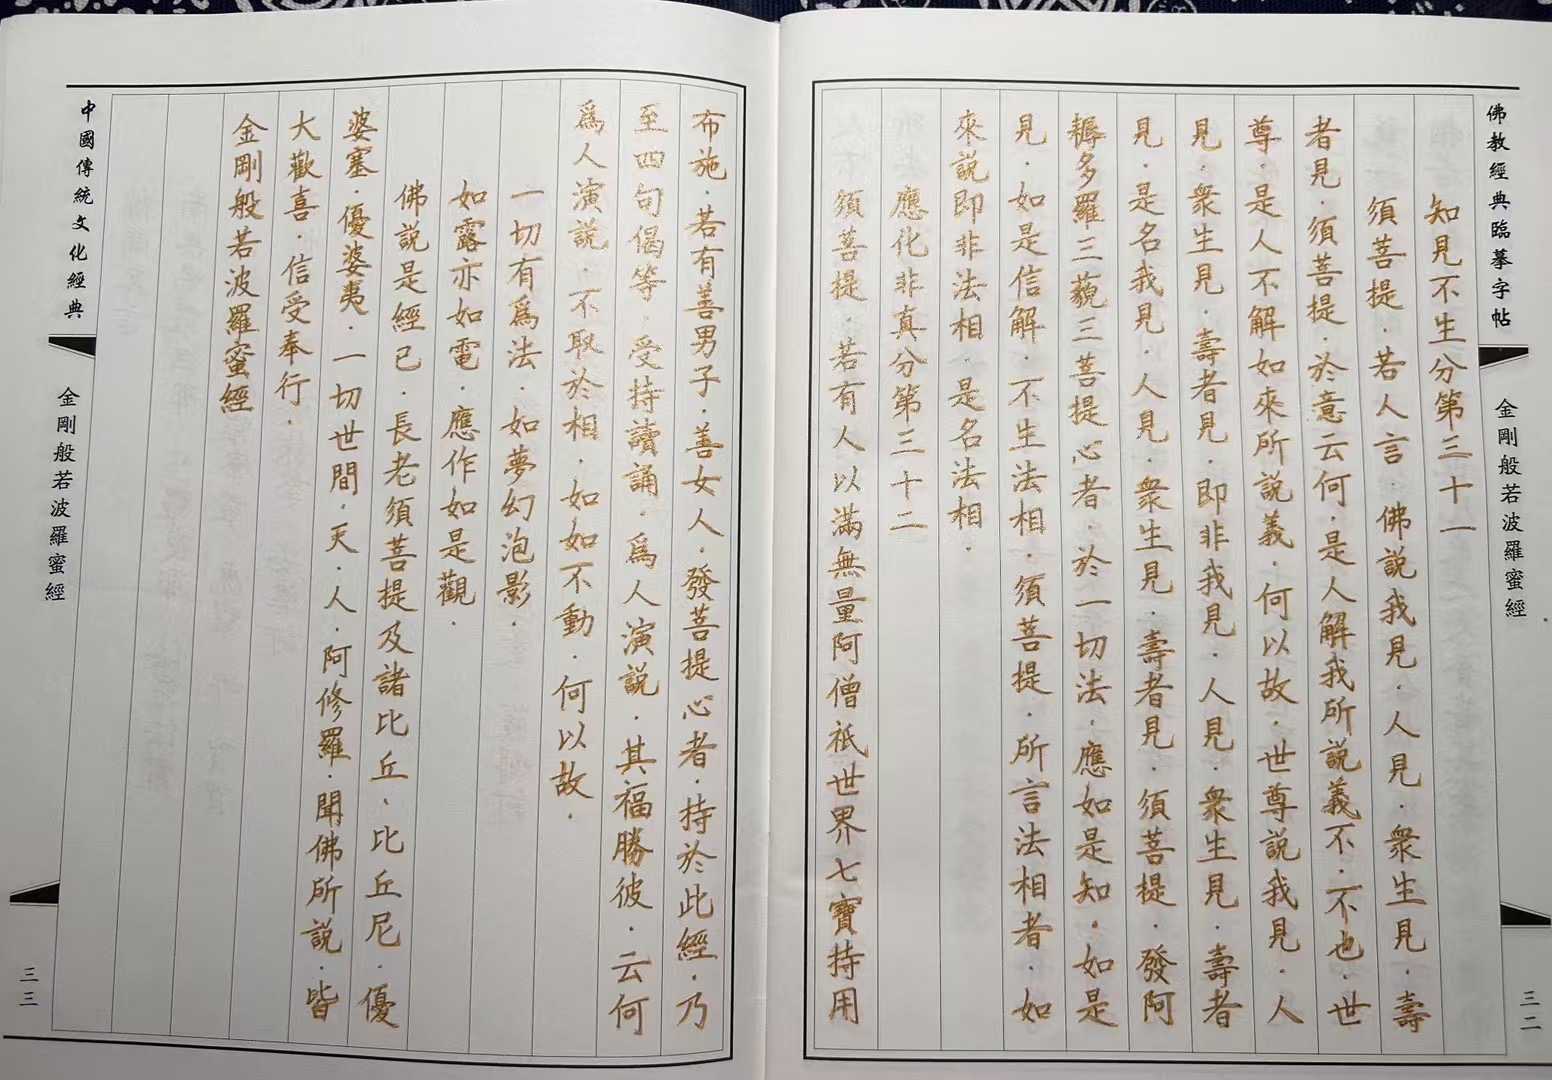 佛教經典臨摹字帖
金剛般若波羅蜜經
三二
知見不生分第三十一
須菩提．若人言．佛說我見．人見．衆生見．壽
者見．須菩提．於意云何．是人解我所說義不．不也．世
尊．是人不解如來所說義．何以故．世尊說我見．人
見．衆生見．壽者見．即非我見．人見．衆生見．壽者
見．是名我見．人見．衆生見．壽者見．須菩提．發阿
耨多羅三藐三菩提心者．於一切法．應如是知．如是
見．如是信解．不生法相．須菩提．所言法相者．如
來說即非法相．是名法相．
應化非真分第三十二
須菩提．若有人以滿無量阿僧祇世界七寶持用
布施．若有善男子．善女人．發菩提心者．持於此經．乃
至四句偈等．受持讀誦．爲人演說．其福勝彼．云何
爲人演說．不取於相．如如不動．何以故．
一切有爲法．如夢幻泡影．
如露亦如電．應作如是觀．
佛說是經已．長老須菩提及諸比丘．比丘尼．優
婆塞．優婆夷．一切世間．天．人．阿修羅．聞佛所說．皆
大歡喜．信受奉行．
金剛般若波羅蜜經
中國傳統文化經典
金剛般若波羅蜜經
三三